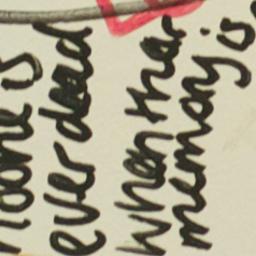 noone is
ever dead
when their
memory is